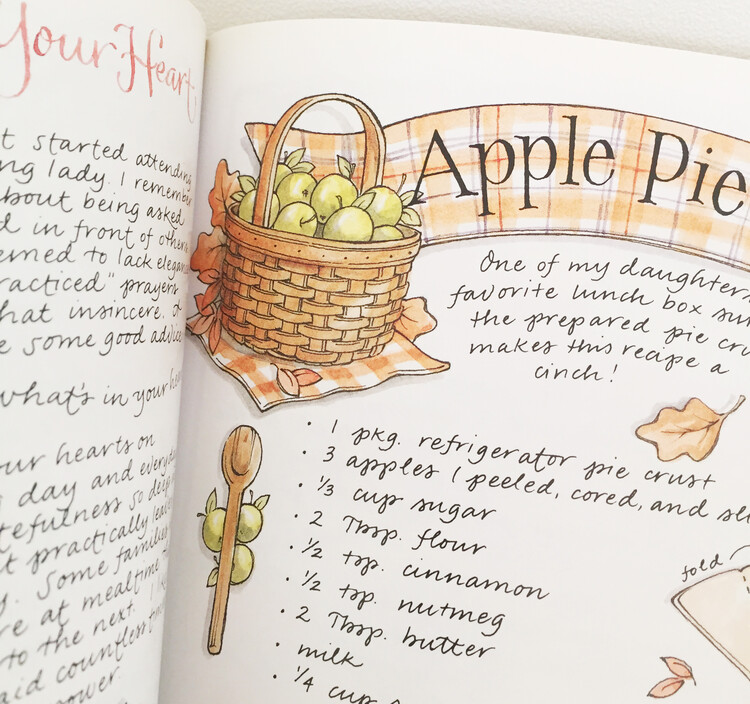 Your Heart
t started attending
ng lady. I remember
about being asked
d in front of others
emed to lack elegan
racticed" prayers
hat insincere. A
e some good advice
what's in your hear
our hearts on
day and everyda
tefulness so deep
t practically leav
y. Some families
re at mealtime
to the next. I
aid countless
power.
Apple Pie
One of my daughters
favorite lunch box sur
the prepared pie cru
makes this recipe a
cinch!
• 1 pkg. refrigerator pie crust
• 3 apples (peeled, cored, and sli
• 1/3 cup sugar
• 2 Tbsp. flour
• 1/2 tsp. cinnamon
• 1/2 tsp. nutmeg
• 2 Tbsp. butter
• milk
• 1/4 cup
fold